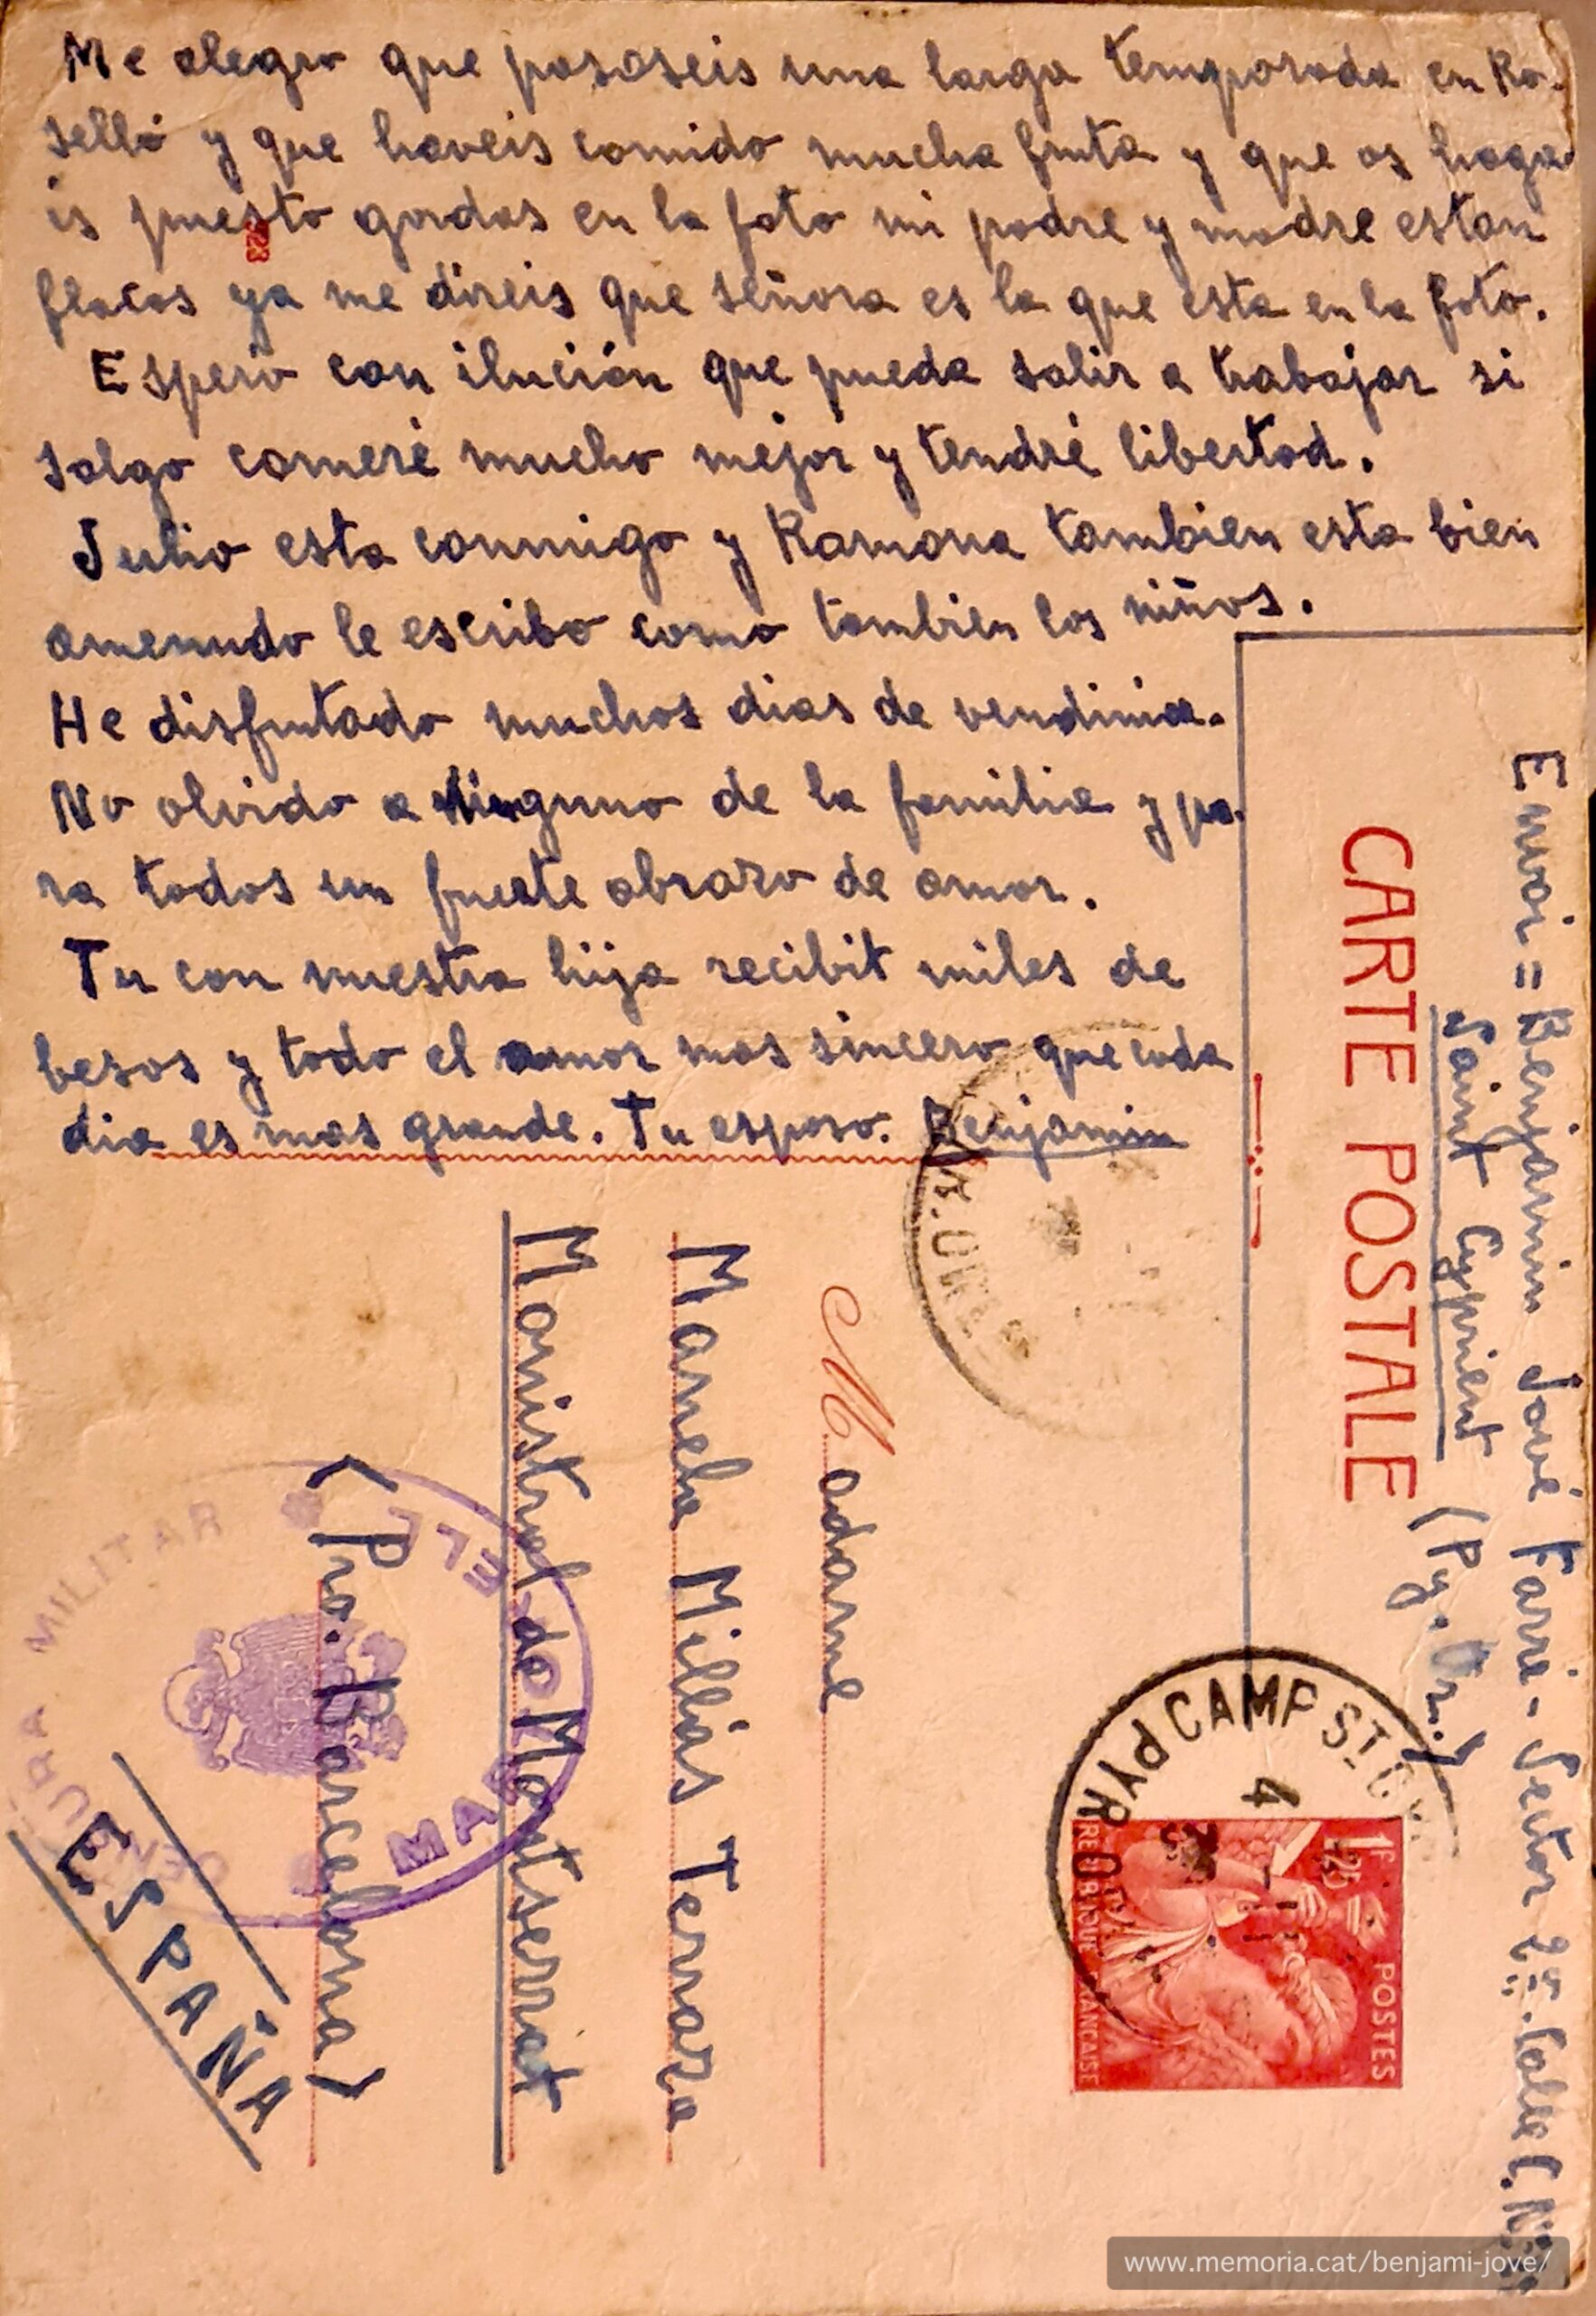 Me alegro que pasaseis una larga temporada en Ro-
selló y que haveis comido mucha fruta y que os haga-
is puesto gordas en la foto mi padre y madre estan
flacos ya me direis que señora es la que esta en la foto.
Espero con ilución que pueda salir a trabajar si
salgo comeré mucho mejor y tendré libertad.
Julio esta conmigo y Ramona tambien esta bien
amenudo le escribo como tambien los niños.
He disfrutado muchos dias de vendimia.
No olvido a ninguno de la familia y pa-
ra todos un fuerte abrazo de amor.
Tu con nuestra hija recibit miles de
besos y todo el amor mas sincero que cada
dia es mas grande. Tu esposo. Benjamin
Envoi = Benjamin Jové Farré - Sector 2º. Calle C.
Saint Cyprient (Py. Or.)
CARTE POSTALE
CAMP ST CY
PYR OR
4
POSTES
1F 25
REPUBLIQUE FRANCAISE
Madame
Manela Millás Terraza
Monistrol de Montserrat
(Pro. Barcelona)
ESPAÑA
CENSURA MILITAR
MAR
www.memoria.cat/benjami-jove/